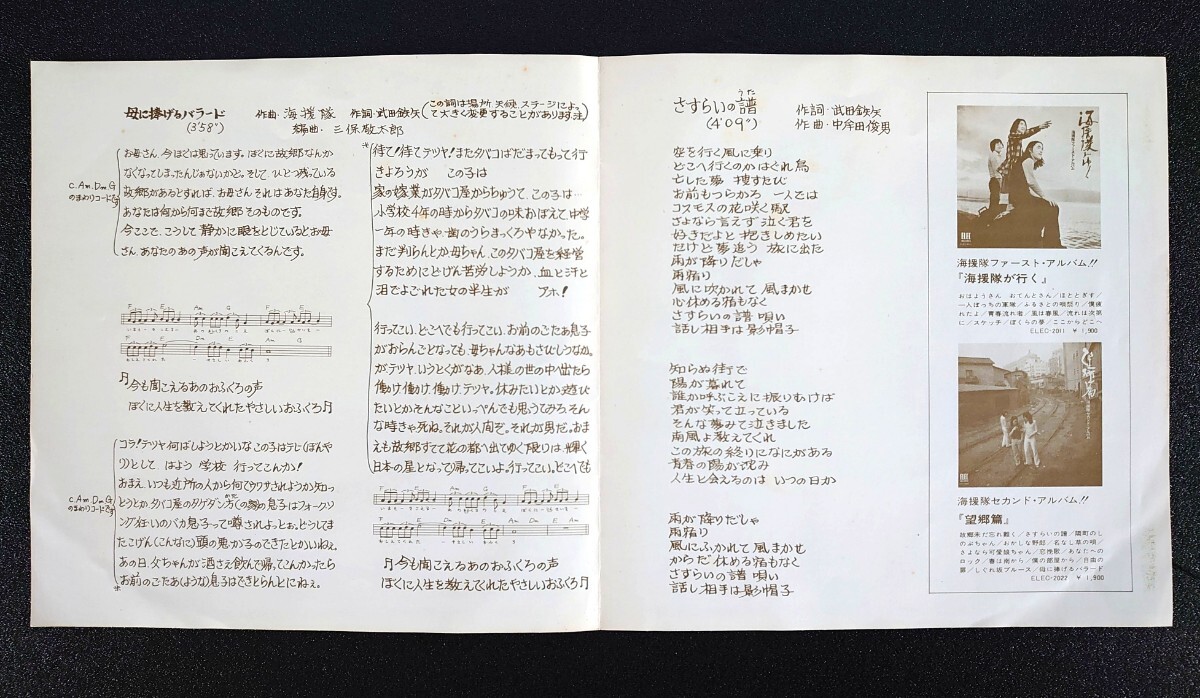 母に捧げるバラード
(3′58″)
作曲・海援隊 作詞・武田鉄矢
(この詞は場所、天候、ステージによって大きく変更することがあります。注)
編曲・三保敬太郎
C. Am. Dm. G
のまわりコードです
お母さん、今ぼくは思っています。ぼくに故郷なんか
なくなってしまったんじゃないかと。そして、ひとつ残っている
故郷があるとすれば、お母さんそれはあなた自身です。
あなたは何から何まで故郷そのものです。
今ここで、こうして静かに眼をとじているとお母
さん、あなたのあの声が聞こえてくるんです。
今も聞こえるあのおふくろの声
ぼくに人生を教えてくれたやさしいおふくろ
C. Am. Dm. G
のまわりコードです
コラ!テツヤ何ばしようとかいな、この子はテレ(ぼんや
り)として はよう 学校 行ってこんか!
おまえ、いつも近所の人から何てウワサされようか知っ
とうとか、タバコ屋のタケダン方(かた)の息子はフォークソ
ング狂いのバカ息子って噂されよっとぉ。どうしてま
たこげん(こんなに)頭の悪か子のできたとかいねぇ。
あの日、父ちゃんが酒さえ飲んで帰ってこんかったら
お前のごたあ(ような)息子はできとらんとにねぇ。
*
*
待て!待てテツヤ!またタバコばだまってもって行
きよろうが この子は
家の稼業がタバコ屋からちゅうて、この子は…
小学校4年の時からタバコの味おぼえて中学
一年の時きゃ歯のうらまっくろやなかった。
まだ判らんとか母ちゃん、このタバコ屋を経営
するためにどげん苦労しようか、血と汗と
泪でよごれた女の半生が アホ!
行ってこい、どこへでも行ってこい。お前のごたあ息子
がおらんごとなっても母ちゃんなあもさびしうなか。
がテツヤ、いうとくがなあ、人様の世の中出たら
働け、働け、働け、テツヤ。休みたいとか遊び
たいとかそんなこといっぺんでも思うてみろ。そん
な時きゃ死ね。それが人間ぞ。それが男だ。おま
えも故郷すてて花の都へ出てゆく限りは、輝く
日本の星となって帰ってこいよ。行ってこい、どこへでも
今も聞こえるあのおふくろの声
ぼくに人生を教えてくれたやさしいおふくろ
さすらいの譜(うた)
(4′09″)
作詞・武田鉄矢
作曲・中牟田俊男
空を行く風に乗り
どこへ行くのかはぐれ鳥
亡した夢 捜すたび
お前もつらかろ 一人では
コスモスの花咲く駅
さよなら言えず 泣く君を
好きだよと 抱きしめたい
だけど夢追う 旅に出た
雨が降りだしゃ
雨宿り
風に吹かれて 風まかせ
心休める宿もなく
さすらいの譜 唄い
話し相手は影帽子
知らぬ街で
陽が暮れて
誰か呼ぶこえに振りむけば
君が笑って立っている
そんな夢みて泣きました
南風よ教えてくれ
この旅の終りになにがある
青春の陽が沈み
人生と会えるのは いつの日か
雨が降りだしゃ
雨宿り
風にふかれて 風まかせ
からだ休める宿もなく
さすらいの譜 唄い
話し相手は影帽子
海援隊ファースト・アルバム!!
『海援隊が行く』
おはようさん おてんとさん/ほととぎす/
一人ぼっちの軍隊/ふるさとの唄怒り/僕疲
れたよ/青春流れ者/風は春風/流れは次第
に/スケッチ/ぼくらの夢/ここからどこへ
ELEC-2011 ¥1,900
望郷篇
海援隊セカンド・アルバム!!
『望郷篇』
故郷未だ忘れ難く/さすらいの譜/隣町のし
のぶちゃん/おかしな野郎/名なし草の唄/
さよなら可愛娘ちゃん/恋挽歌/あなたへの
ロック/春は南から/僕の部屋から/自由の
扉/しぐれ坂ブルース/母に捧げるバラード
ELEC-2022 ¥1,900